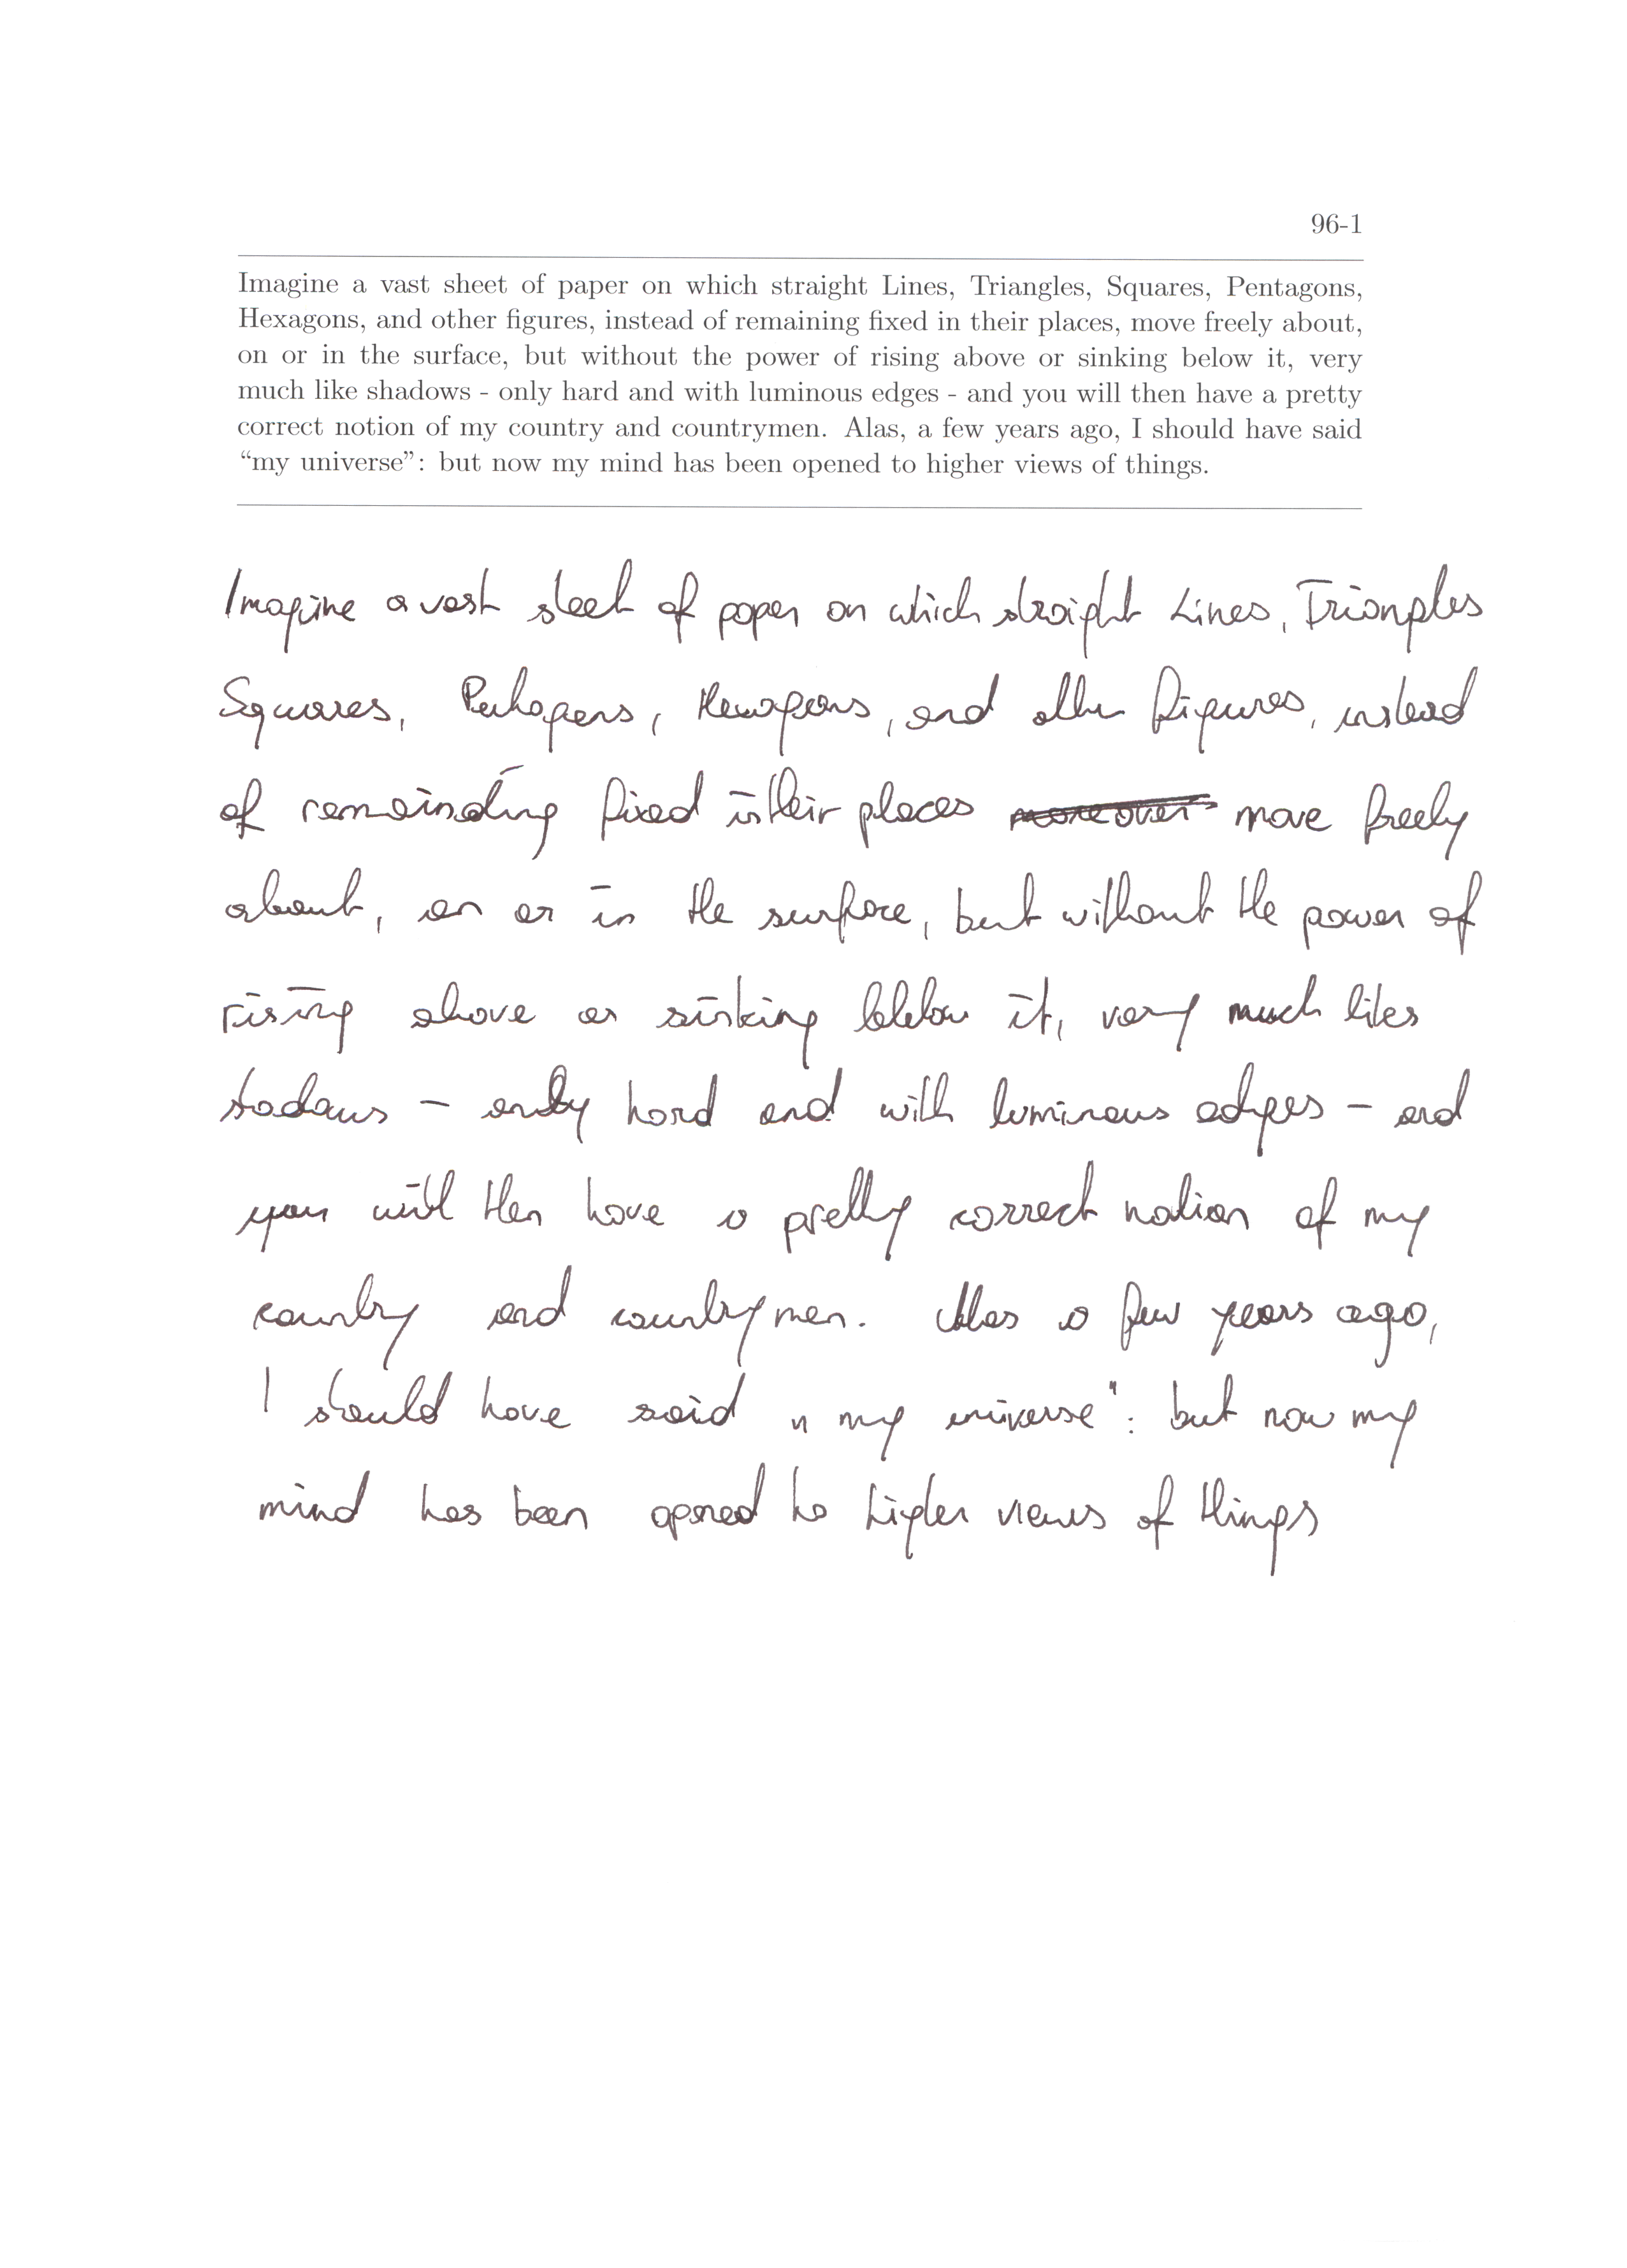 96-1
Imagine a vast sheet of paper on which straight Lines, Triangles, Squares, Pentagons,
Hexagons, and other figures, instead of remaining fixed in their places, move freely about,
on or in the surface, but without the power of rising above or sinking below it, very
much like shadows - only hard and with luminous edges - and you will then have a pretty
correct notion of my country and countrymen. Alas, a few years ago, I should have said
“my universe”: but now my mind has been opened to higher views of things.
Imagine a vast sheet of paper on which straight Lines, Triangles
Squares, Pentagons, Hexagons, and other figures, instead
of remainding fixed in their places moreover move freely
about, on or in the surface, but without the power of
rising above or sinking below it, very much likes
shadows - only hard and with luminous edges - and
you will then have a pretty correct notion of my
country and countrymen. Alas a few years ago,
I should have said "my universe": but now my
mind has been opened to higher views of things